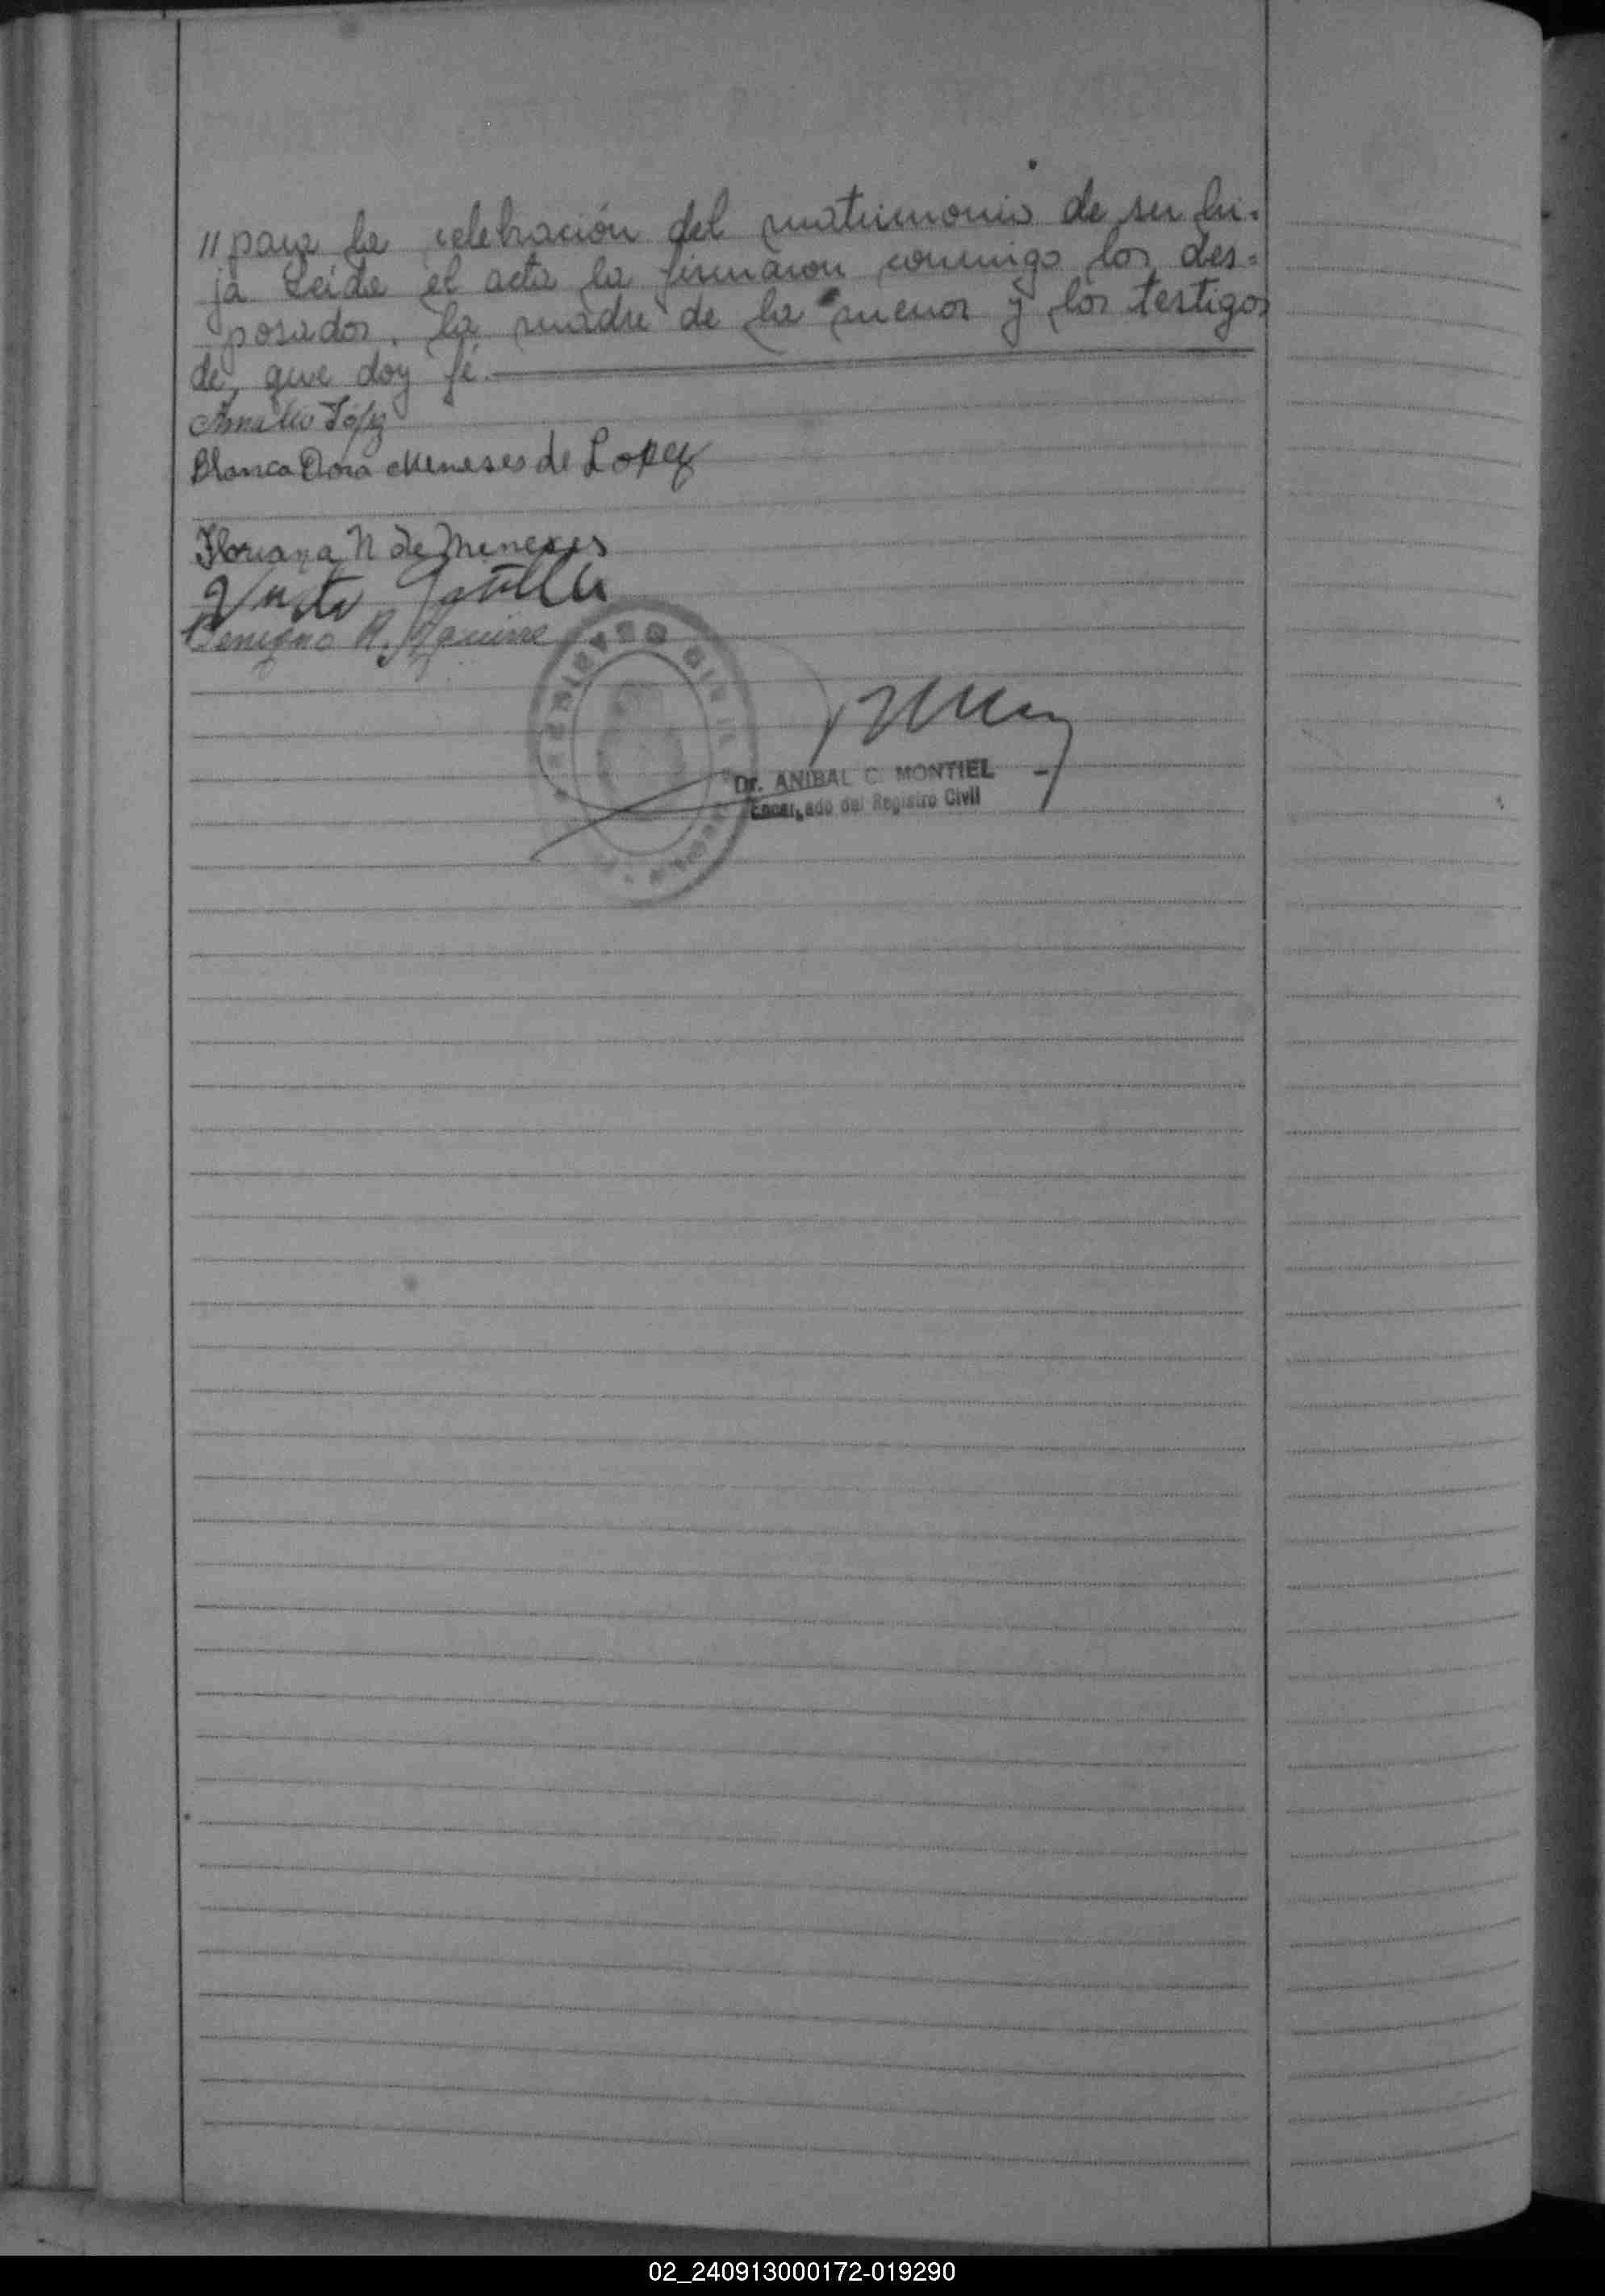 // para la celebración del matrimonio de su hi-
ja Leida el acta la firmaron conmigo los des=
posados, la madre de la menor y los testigos
de que doy fé.
Amalio López
Blanca Dora Meneses de Lopez
Floriana N de Meneses
Benigno A. Aguirre
Dr. ANIBAL C. MONTIEL
Encargado del Registro Civil
02_240913000172-019290